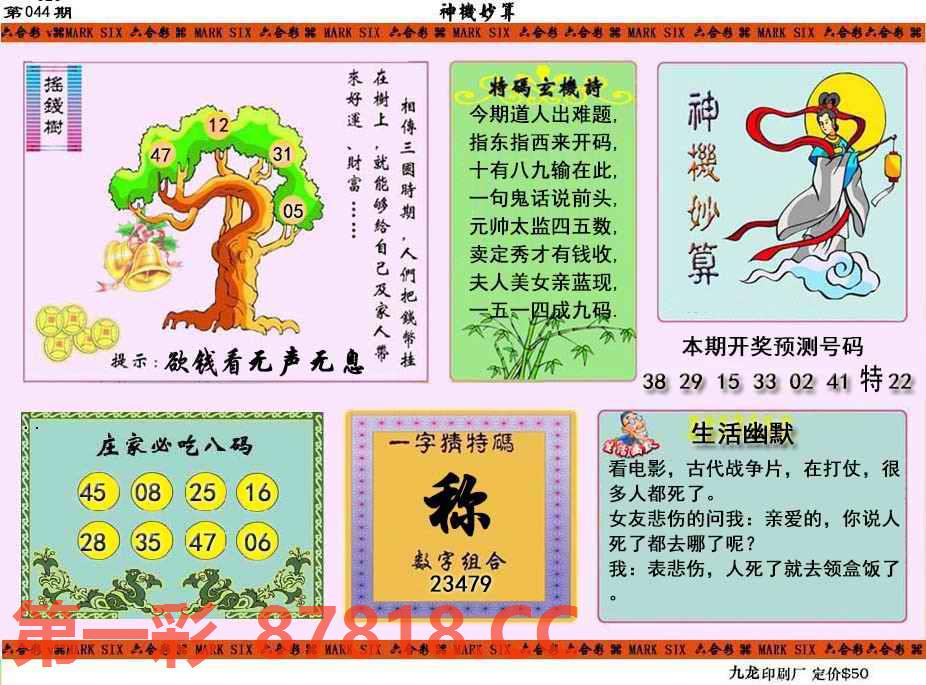 第044期
神機妙算
六合彩 MARK SIX 六合彩 MARK SIX 六合彩 MARK SIX 六合彩 MARK SIX 六合彩 六合彩 MARK SIX 六合彩 MARK SIX 六合彩六合彩
搖錢樹
相傳三國時期，人們把錢幣挂
在樹上，就能够给自己及家人帶
來好運、財富……
12
47
31
05
提示：欲钱看无声无息
特碼玄機詩
今期道人出难题,
指东指西来开码,
十有八九输在此,
一句鬼话说前头,
元帅太监四五数,
卖定秀才有钱收,
夫人美女亲蓝现,
一五一四成九码.
神機妙算
本期开奖预测号码
38 29 15 33 02 41 特22
庄家必吃八码
45 08 25 16
28 35 47 06
一字猜特碼
称
数字组合
23479
生活幽默
生活幽默
看电影，古代战争片，在打仗，很
多人都死了。
女友悲伤的问我：亲爱的，你说人
死了都去哪了呢？
我：表悲伤，人死了就去领盒饭了
。
第一彩 87818.CC
六合彩 MARK SIX 六合彩 MARK SIX 六合彩 MARK SIX 六合彩 MARK SIX 六合彩 六合彩 MARK SIX 六合彩 MARK SIX 六合彩六合彩
九龙印刷厂 定价$50